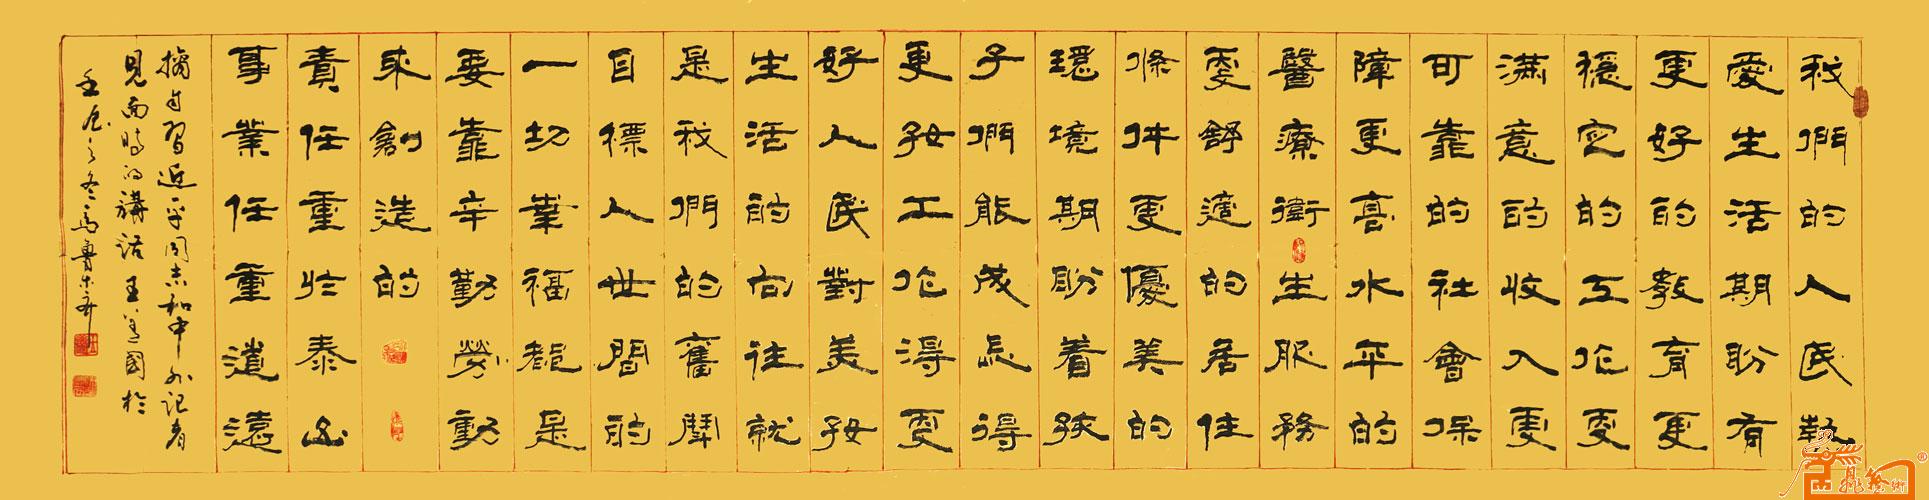 我們的人民熱
愛生活期盼有
更好的教育更
穩定的工作更
满意的收入更
可靠的社會保
障更高水平的
醫療衛生服務
更舒適的居住
條件更優美的
環境期盼着孩
子們能成長得
更好工作得更
好人民對美好
生活的向往就
是我們的奮鬥
目標人世間的
一切幸福都是
要靠辛勤勞動
來創造的
責任重於泰山
事業任重道遠
摘自習近平同志和中外記者
見面時的講話 王善國於
壬辰之冬